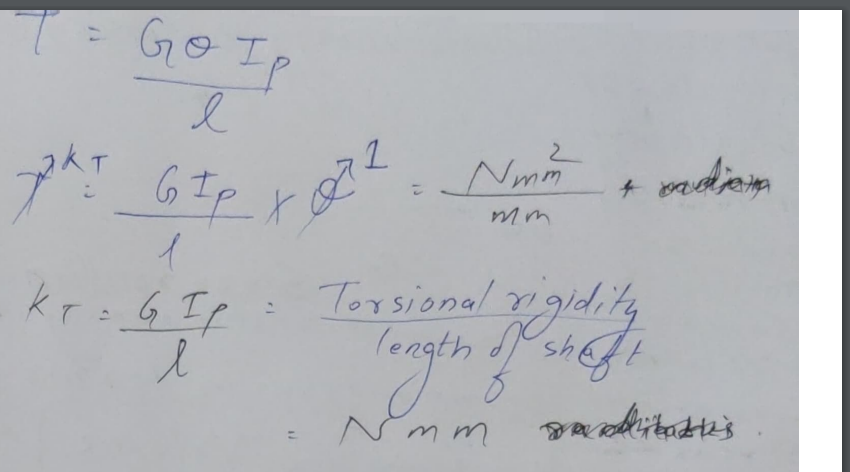 T = GθIp
l
T kT = GIp × θ 1 = Nmm²
l mm
kT = GIp = Torsional rigidity
l length of shaft
= Nmm